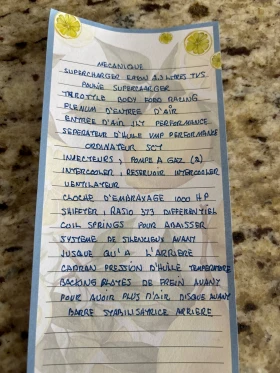 MECANIQUE
SUPERCHARGER EATON 2.3 LITRES TVS
POULIE SUPERCHARGER
THROTTLE BODY FORD RACING
PLENUM D'ENTREE D'AIR
ENTREE D'AIR JLT PERFORMANCE
SEPERATEUR D'HUILE VMP PERFORMANCE
ORDINATEUR SCT
INJECTEURS, POMPE A GAZ (2)
INTERCOOLER, RESERVOIR INTERCOOLER
VENTILATEUR
CLOCHE D'EMBRAYAGE 1000 HP
SHIFTER, RATIO 373 DIFFERENTIEL
COIL SPRINGS POUR ABAISSER
SYSTEME DE SILENCIEUX AVANT
JUSQUE QU'A L'ARRIERE
CADRAN PRESSION D'HUILE TEMPERATURE
BACKING PLATES DE FREIN AVANT
POUR AVOIR PLUS D'AIR DISQUE AVANT
BARRE STABILISATRICE ARRIERE